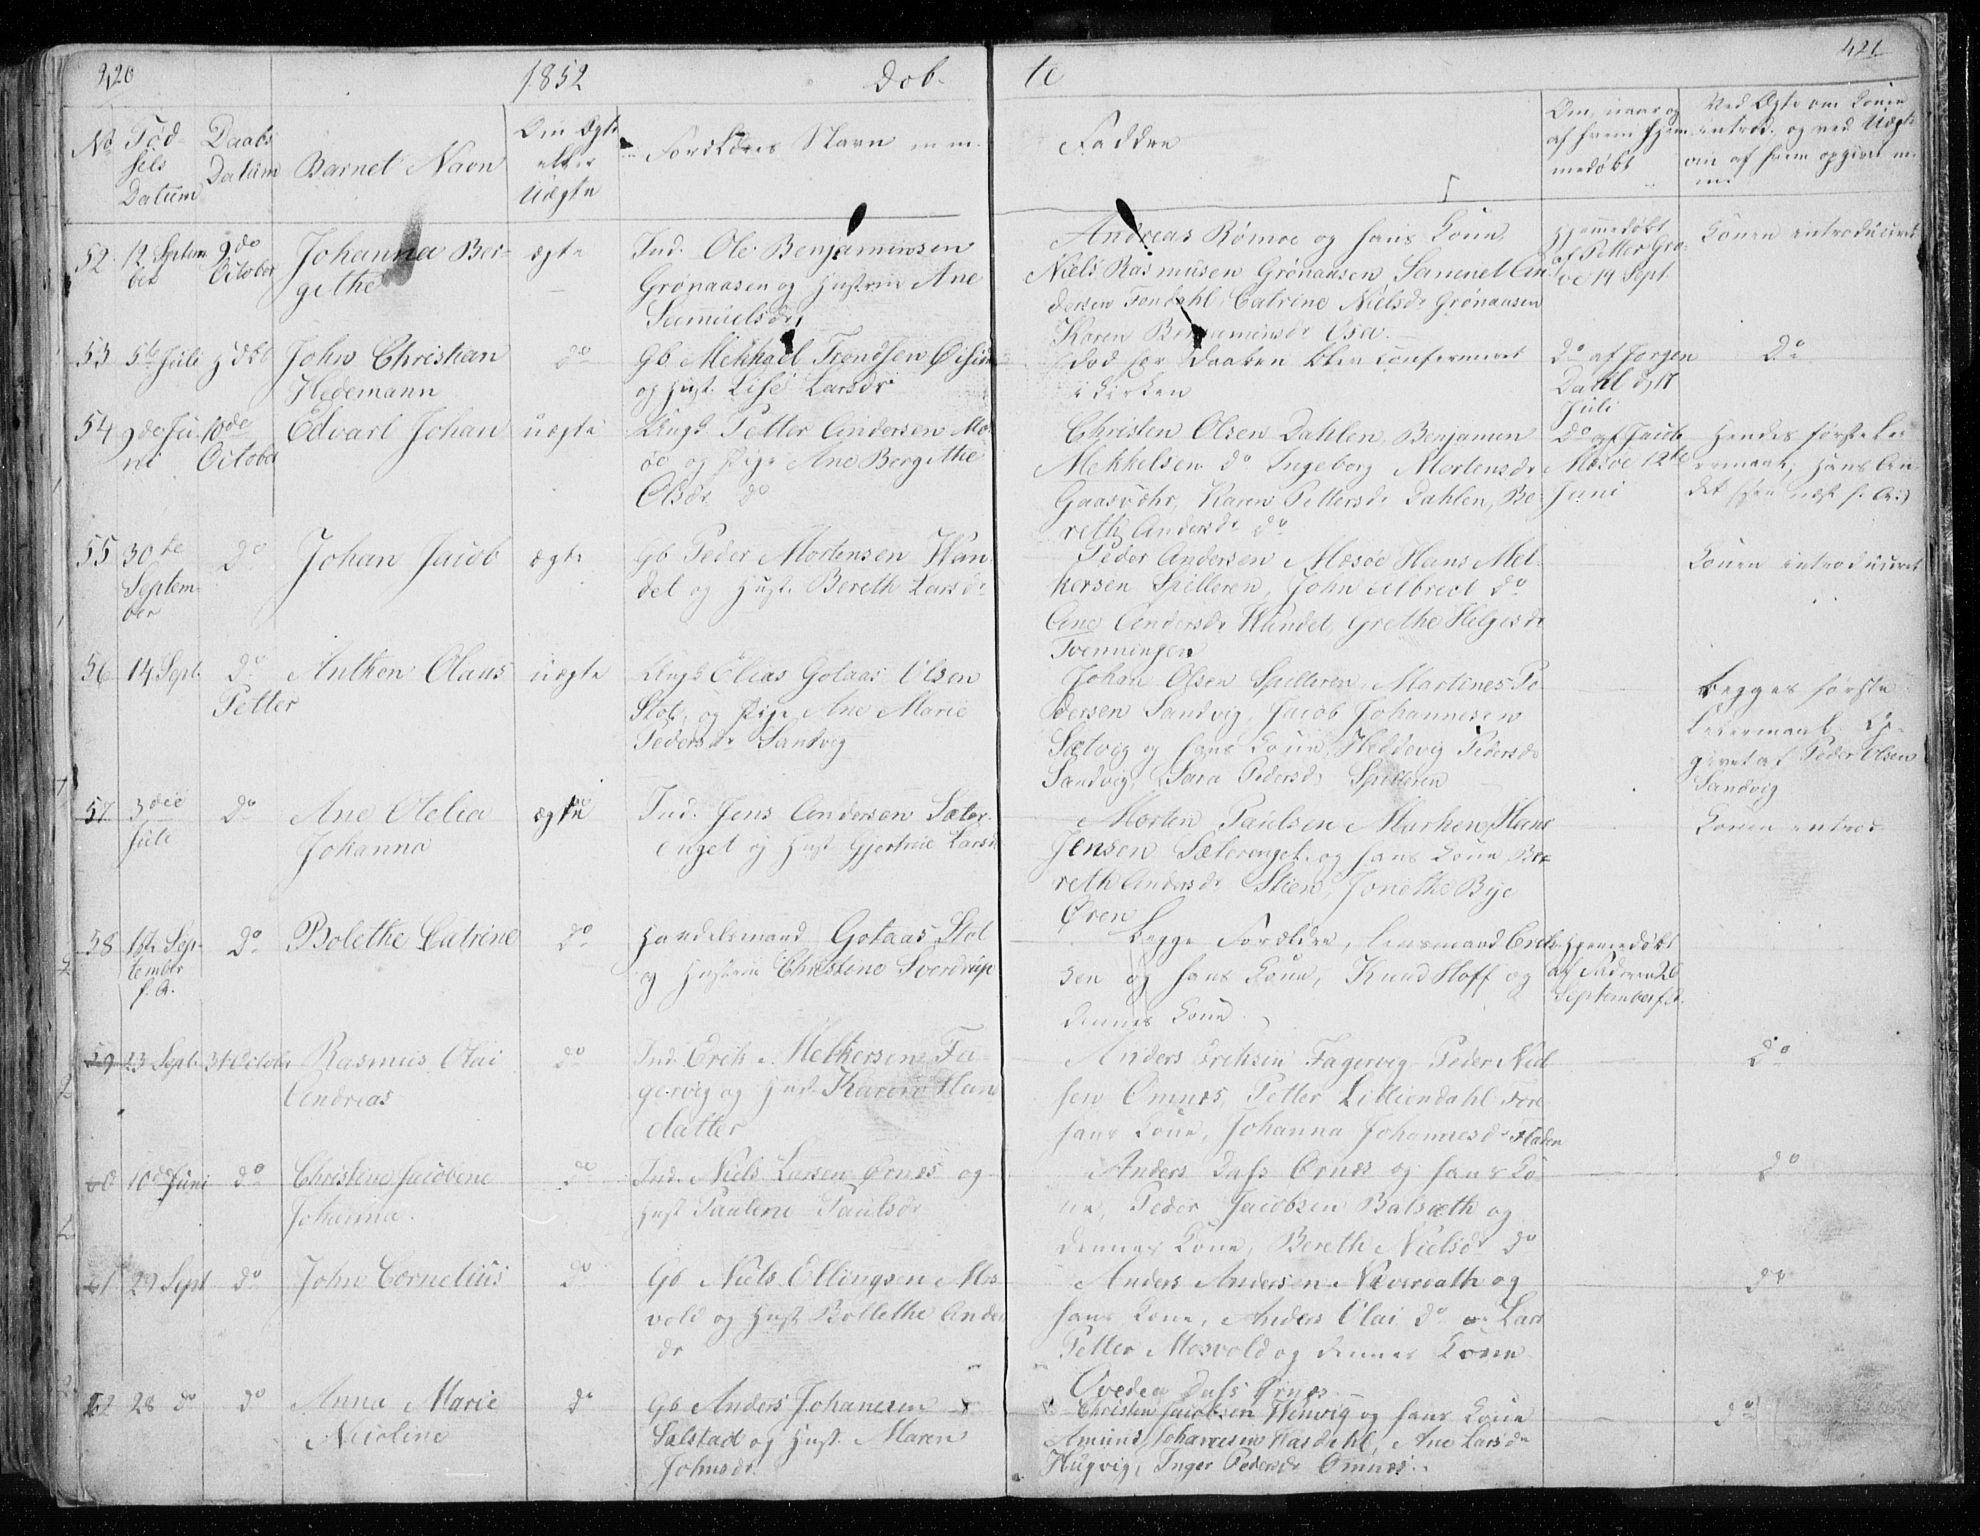 420
1852
Døb-
te
421
No
Fød-
sels
Datum
Daabs
Datum
Barnets Navn
Om Ægte
eller
Uægte
Forældres Navn m.m.
Faddre
Om, naar og
af hvem hjem
medøbt
Ved Ægte om Konen
introd. og ved Uægte
om af hvem opgivet m.
m.
52
12 Septem
ber
9de
October
Johanna Ber-
githe
ægte
Ind. Ole Benjaminsen
Grønaasen og Hustrue Ane
Samuelsdr
Andreas Rømoe og hans Kone,
Niels Rasmusen Grønaasen, Samuel An
dersen Fondahl, Catrine Nielsdr Grønaasen
Karen Benjaminsdr
Hjemmedøbt
af Petter Gro-
voe 14 Sept
Konen introduceret
53
5te Juli
John Christian
Hedemann
do
Gb Mekkael Trondsen
og Hust. Lise Larsdr
død før Daaben blev confirmeret
i Kirken
Do af Jørgen
Dahl d. 17
Juli
Do
54
9de Ju
ni
10de
October
Edvart Johan
uægte
Ungk. Petter Andersen Mæ
søe og Pige Ane Bergithe
Olsdr do
Christen Olsen Dahlen, Benjamin
Mekkelsen do Ingeborg Mortensdr
Karen Pettersdr Dahlen, Be-
reth Andersdr do
Do af Jacob
Mæsøe 12te
Juni
Hendes første Lei
ermaal, hans An
det
55
30te
Septem-
ber
Do
Johan Jacob
ægte
Gb Peder Mortensen Wan
del og Hust. Bereth Larsdr
Peder Andersen Mæsøe Hans Mel-
kersen Spilleren, John Albrect do
Ane Andersdr Wandel, Grethe Helgesdr
Tvenningen
Konen introduceret
56
14 Sept.
Do
Anthon Olaus
Petter
uægte
Ungk Elias Gotaas Olsen
Stot, og Pige Ane Marie
Pedersdr Sandvig
Johan Olsen Spilleren, Martines Pe
dersen Sandvig, Jacob Johannesen
Sætvig og hans Kone, Heddevig Pedersdr
Sandvig, Sara Pedersdr Spilleren
Begges første
Leiermaal, Op-
givet af Peder Olsen
Sandvig
57
3die
Juli
Do
Ane Otelia
Johanna
ægte
Ind. Jens Andersen Sæter-
enget og Hust Gjertrue Larsdr
Morten Paulsen Marken, Hans
Jensen Sæterenget og hans Kone Be-
reth Andersdr Stien, Jonethe Bye
Øren
Konen introd.
58
Sep-
tembr
f. A.
Do
Bolethe Catrine
do
Handelsmand Gotaas Stot
og Hustrue Christine Sverdrup
Begge Forældre, Lensmand Erik
sen og hans Kone, Knud Hoff og
dennes Kone
Hjemmedøbt
af Faderen 26
September f. A.
59
23 Sept
31 October
Rasmus Olai
Andreas
do
Ind. Erik Melkersen Fa-
gervig og Hust Karen Han
datter
Anders Eriksen Fagervig Peder Niel
sen Omnes, Petter Lilliendahl
hans Kone, Johanna Johannesdr
Do
60
10de Juni
do
Christine Jacobine
Johanna.
do
Ind. Niels Larsen Ørnes og
Hust Pauline Paulsdr
Anders Dass Ørnes og hans Ko
ne, Peder Jacobsen Balsæth og
dennes Kone, Bereth Nielsdr do
do
61
29 Sept
do
John Cornelius
do
Gb Niels Ellingsen Mos
vold og Hust Bollethe Ander
dr
Anders Andersen Næveraath og
hans Kone, Anders Olai do Lars
Petter Mosvold og dennes Kone
Ovedea Dass Ørnes
do
62
28 do
do
Anna Marie
Nicoline
do
Gb Anders Johanesen
Salstad og Hust. Maren
Johnsdr
Christen Jacobsen og hans Kone
Amund Johannesen Ane Larsdr
Hugvig, Inger Pedersdr Omnes
do